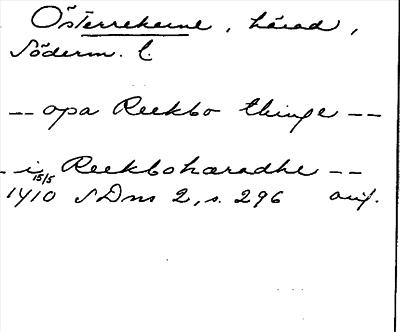 Österrekarne, härad,
Söderm. l.
-- opa Reekbo thinge --
- i Reekbohæradhe --
15/5 1410 SDns 2, s. 296 avs.